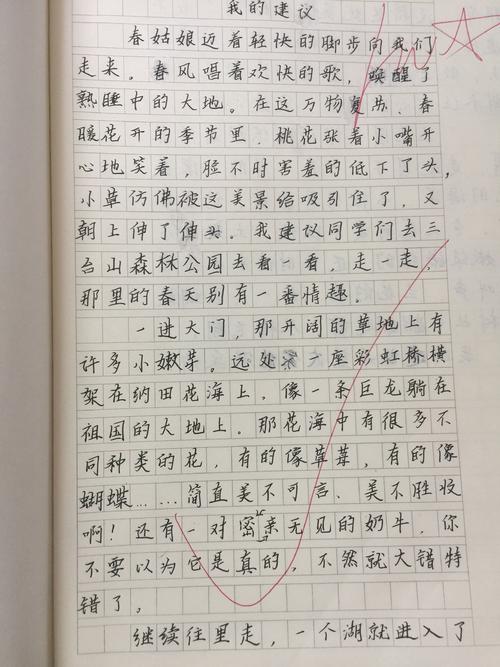 我的建议
春姑娘迈着轻快的脚步向我们
走来。春风唱着欢快的歌，唤醒了
熟睡中的大地。在这万物复苏、春
暖花开的季节里，桃花张着小嘴开
心地笑着，脸不时害羞的低下了头，
小草仿佛被这美景给吸引住了，又
朝上伸了伸头。我建议同学们去三
台山森林公园去看一看，走一走，
那里的春天别有一番情趣。
一进大门，那开阔的草地上有
许多小嫩芽。远处一座彩虹桥横
架在纳田花海上，像一条巨龙躺在
祖国的大地上。那花海中有很多不
同种类的花，有的像草莓，有的像
蝴蝶……简直美不可言、美不胜收
啊！还有一对密亲无见的奶牛，你
不要以为它是真的，不然就大错特
错了。
继续往里走，一个湖就进入了